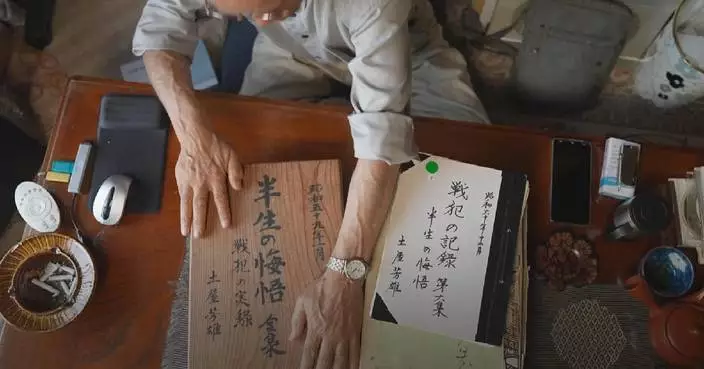 昭和五十九年一月
半生の悔悟 全集
戦犯の実録
土屋芳雄
昭和六十年
戦犯の記録 第六集
半生の悔悟
土屋芳雄